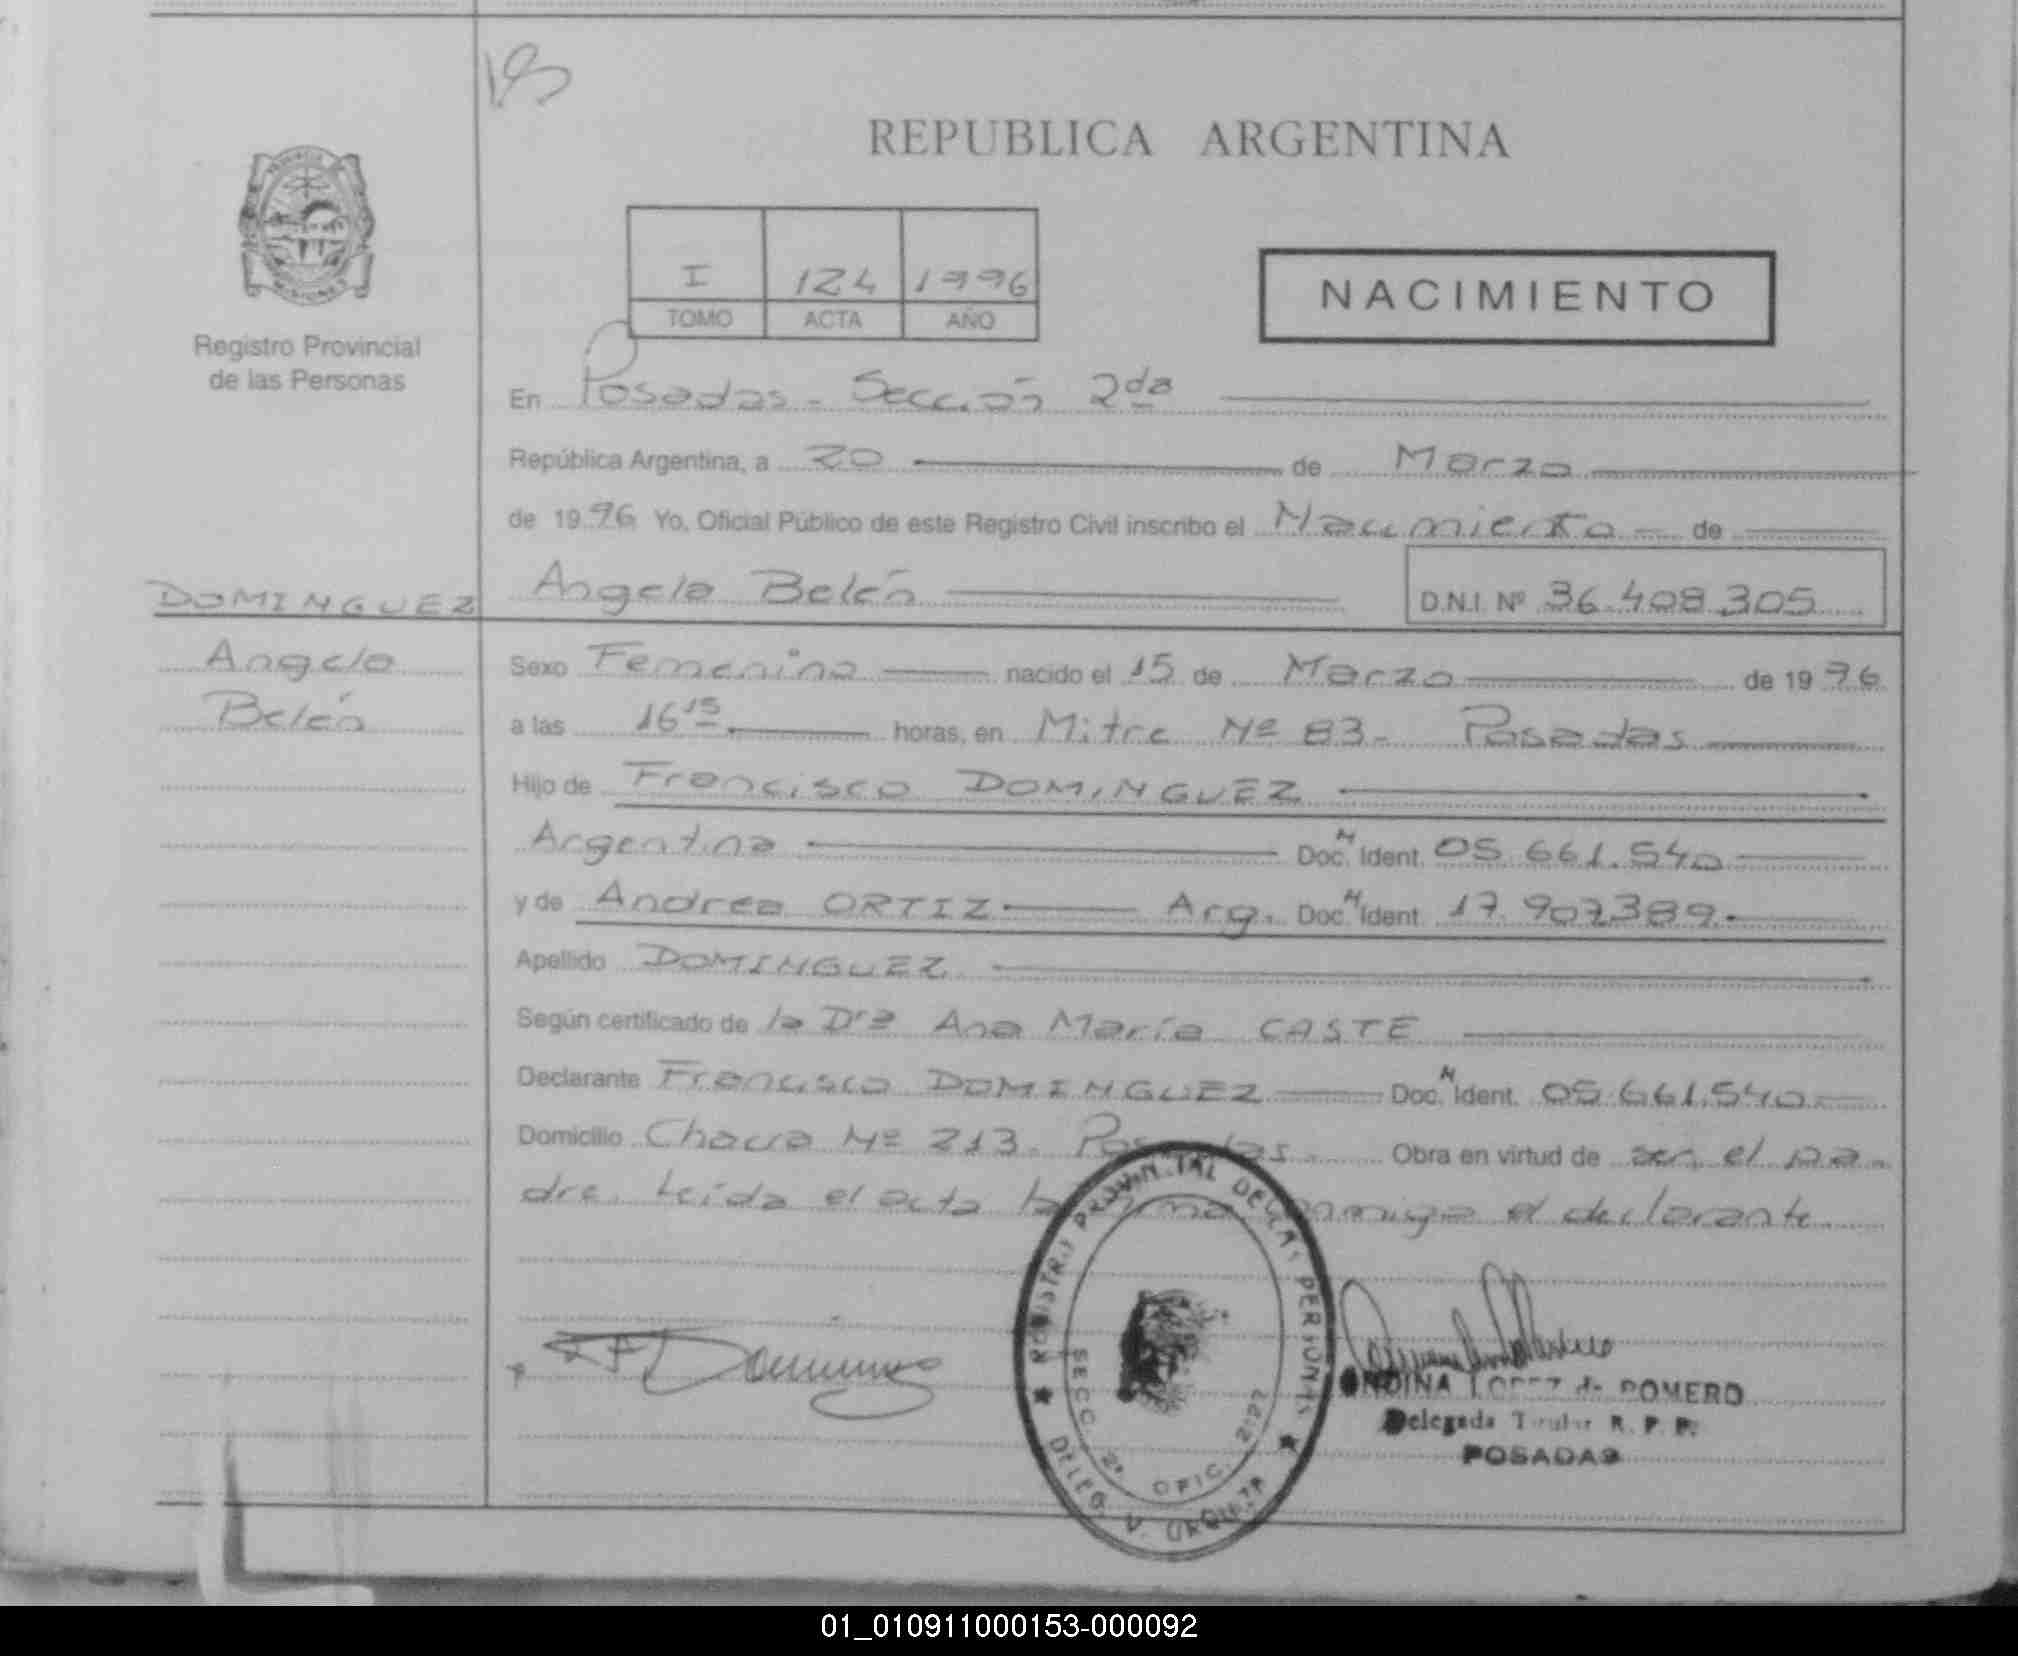 REPUBLICA ARGENTINA
I 124 1996
TOMO ACTA AÑO
NACIMIENTO
MISIONES
Registro Provincial
de las Personas
En Posadas - Sección 2da
República Argentina, a 20 de Marzo
de 1996 Yo, Oficial Público de este Registro Civil inscribo el Nacimiento de
DOMINGUEZ
Angela Belén
Angela Belén D.N.I. Nº 36.408.305
Sexo Femenino nacido el 15 de Marzo de 1996
a las 16 15 horas, en Mitre Nº 83 - Posadas
Hijo de Francisco DOMINGUEZ
Argentina Doc. N Ident. 05.661.540
y de Andrea ORTIZ Arg. Doc. N Ident. 17.907.389.
Apellido DOMINGUEZ
Según certificado de la Dra Ana María CASTE
Declarante Francisco DOMINGUEZ Doc. N Ident. 05.661.540
Domicilio Nº 213. Posadas. Obra en virtud de ser el pa-
dre. Leída el acta la firma conmigo el declarante.
REGISTRO PROVINCIAL DE LAS PERSONAS
SECC. 2ª OFIC.
DELEG. V. URQUIZA
LOPEZ de ROMERO
Delegada Titular R. P. P.
POSADAS
01_010911000153-000092